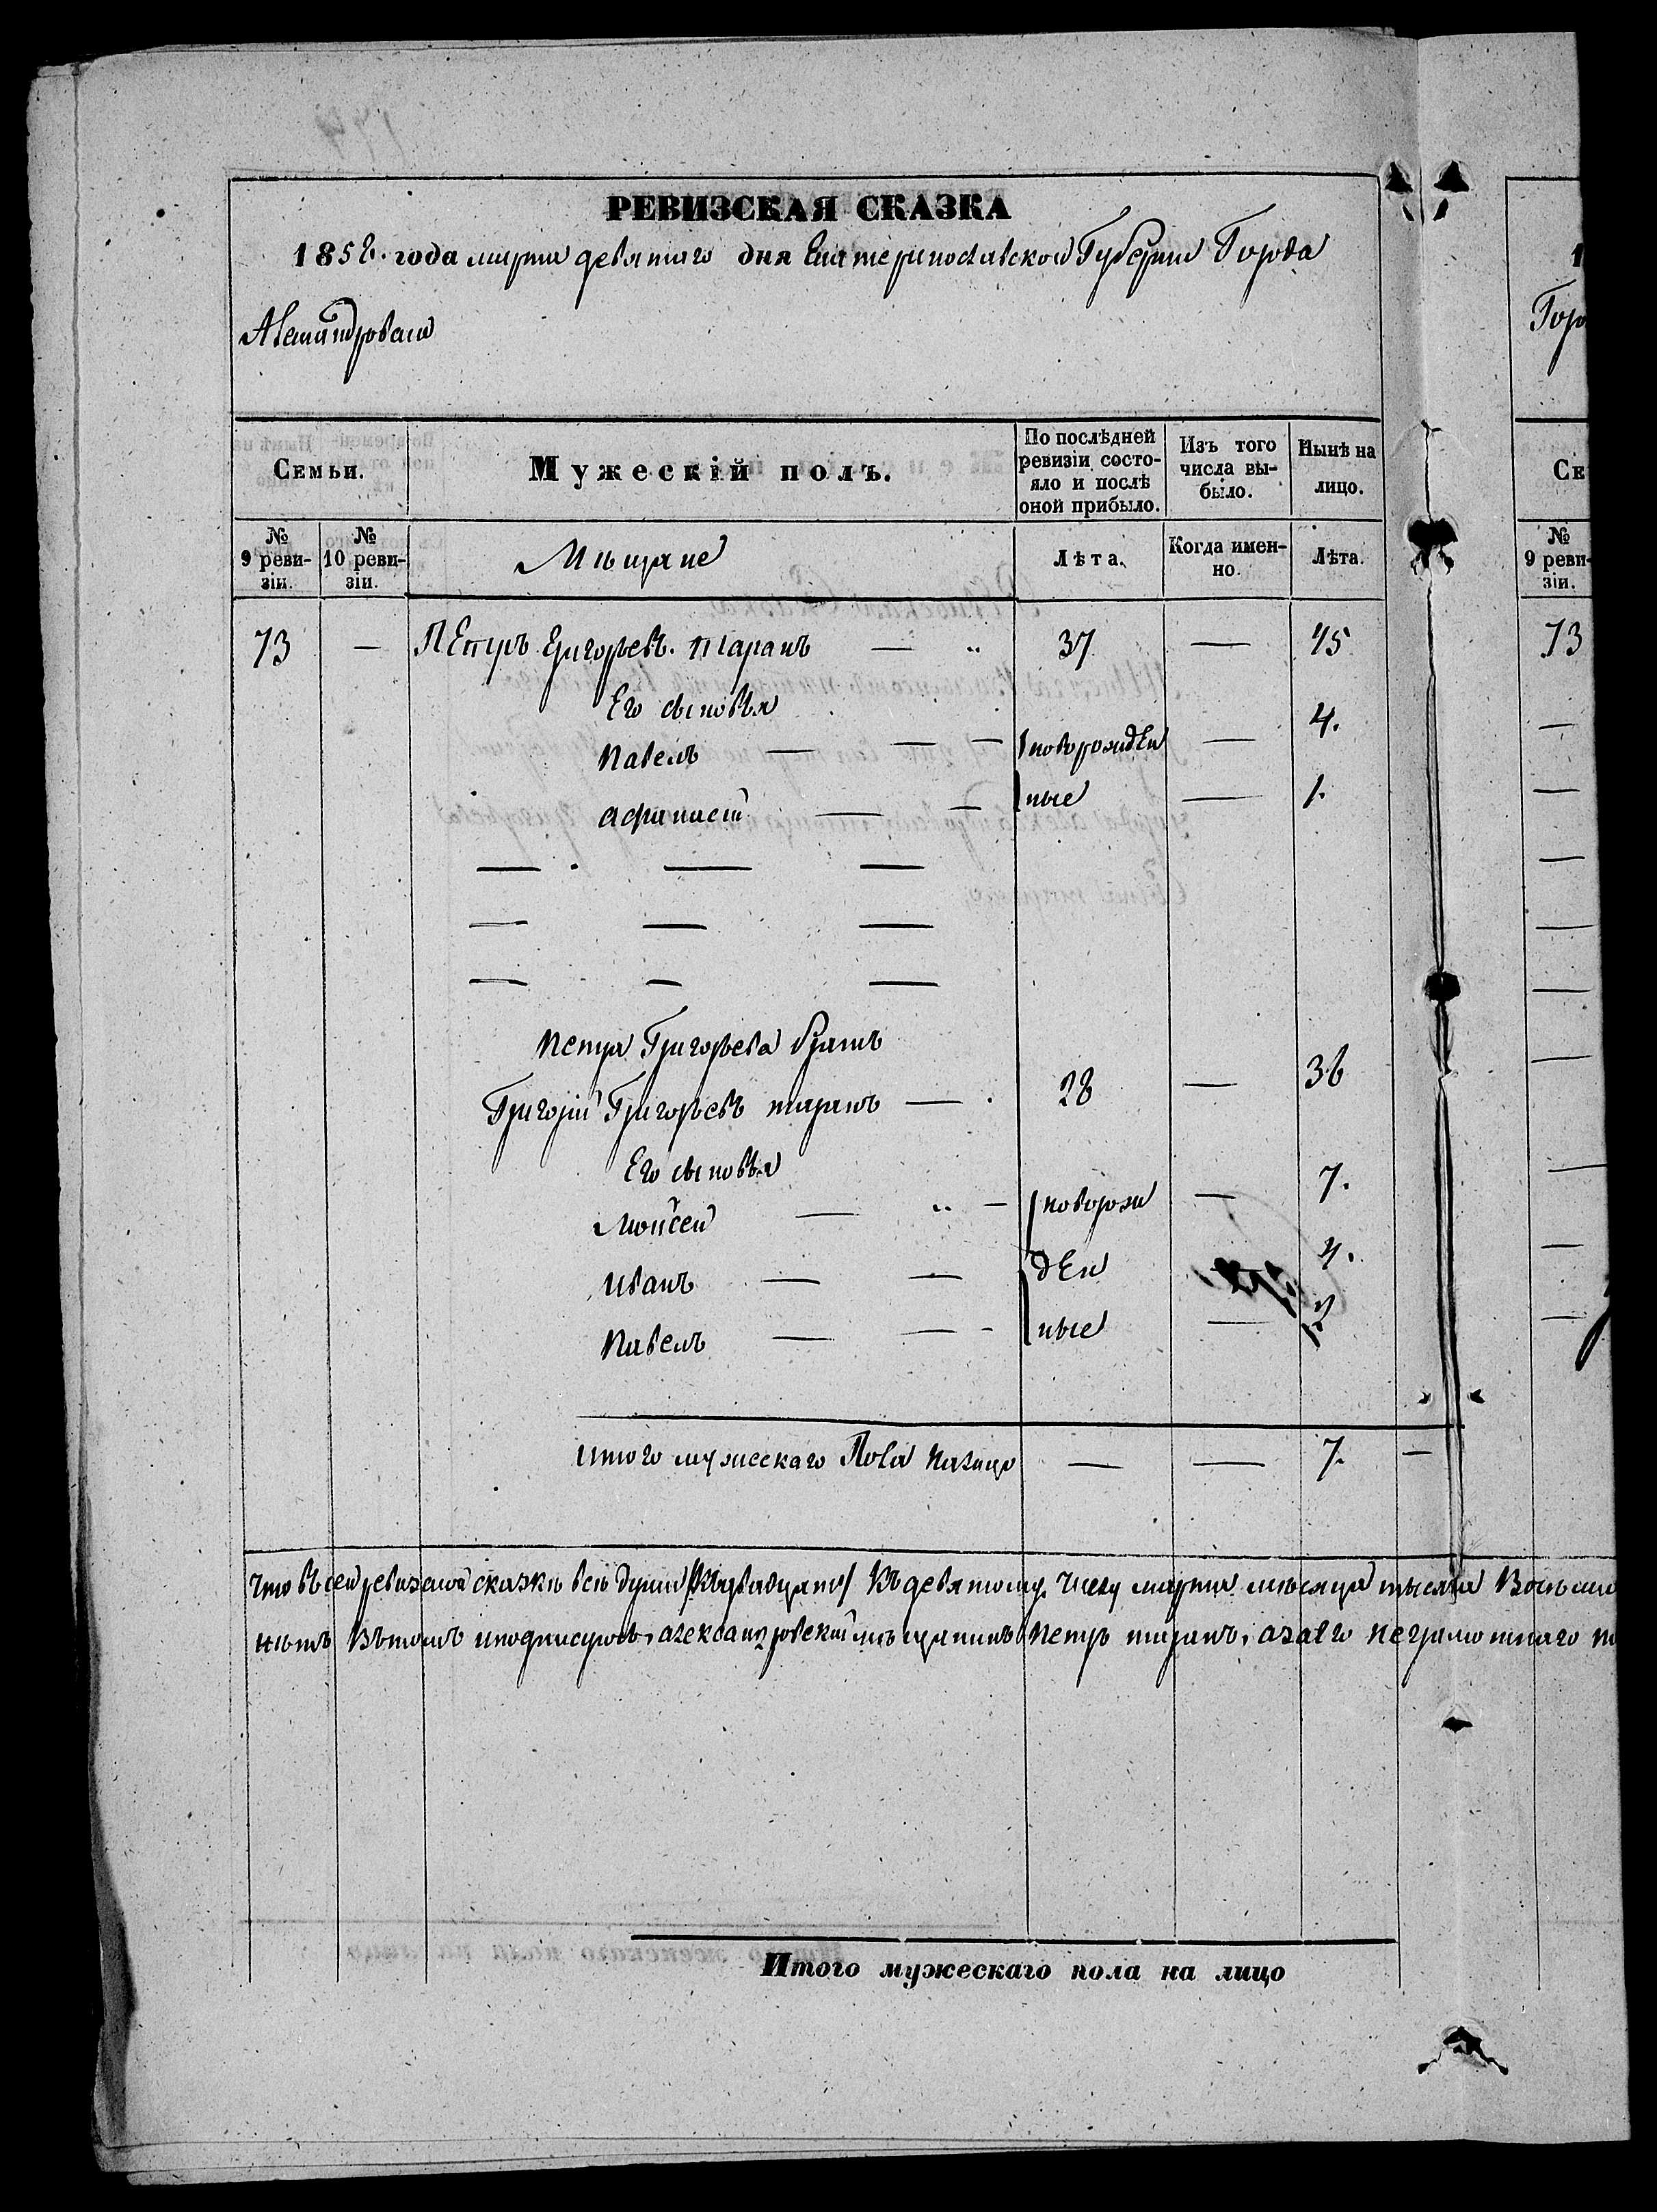 РЕВИЗСКАЯ СКАЗКА
1858. года марта девятаго дня Екатеринославской Губернии Города
Александровска
Семьи.
Мужескій полъ.
По послѣдней ревизіи состояло и послѣ оной прибыло.
Изъ того числа выбыло.
Нынѣ на лицо.
№ 9 ревизіи.
№ 10 ревизіи.
Мѣщане
Лѣта.
Когда именно.
Лѣта.
73 — Петръ Григорьевъ Таранъ — 37 — 45
Его сыновья
Павелъ — — — новорожден — 4.
Афанасій — — ные — 1.
Петра Григорьева братъ
Григорій Григорьевъ таранъ — 28 — 36
Его сыновья
Моисей — — новорож — 7.
Иванъ — — ден 4.
Павелъ — — - ные — 2
итого мужескаго Пола налицо — — 7. —
Что въ сей ревизской сказкѣ всѣ души къ девятому числу марта мѣсяца тысяча
нѣтъ въ томъ и подписуюсь, александровскій мѣщанинъ Петръ таранъ, а за его неграмотнаго
Итого мужескаго пола на лицо
Горо
Се
№
9 реви-
зіи.
73